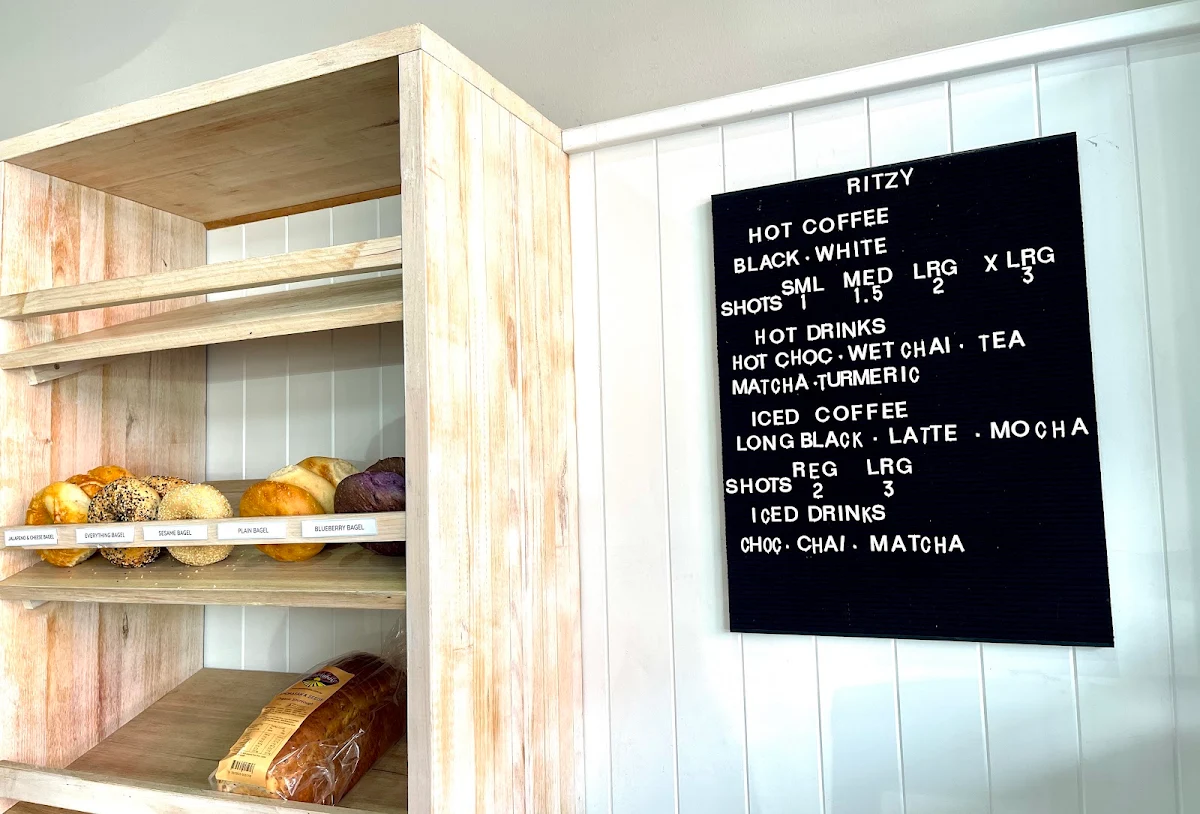 RITZY
HOT COFFEE
BLACK · WHITE
SML MED LRG X LRG
SHOTS 1 1.5 2 3
HOT DRINKS
HOT CHOC · WET CHAI · TEA
MATCHA · TURMERIC
ICED COFFEE
LONG BLACK · LATTE · MOCHA
REG LRG
SHOTS 2 3
ICED DRINKS
CHOC · CHAI · MATCHA
JALAPENO & CHEESE BAGEL
EVERYTHING BAGEL
SESAME BAGEL
PLAIN BAGEL
BLUEBERRY BAGEL